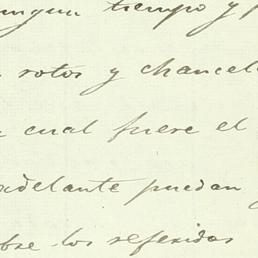 ningun tiempo y p
rotos y chancel
cual fuere el
adelante puedan
bre los referidos